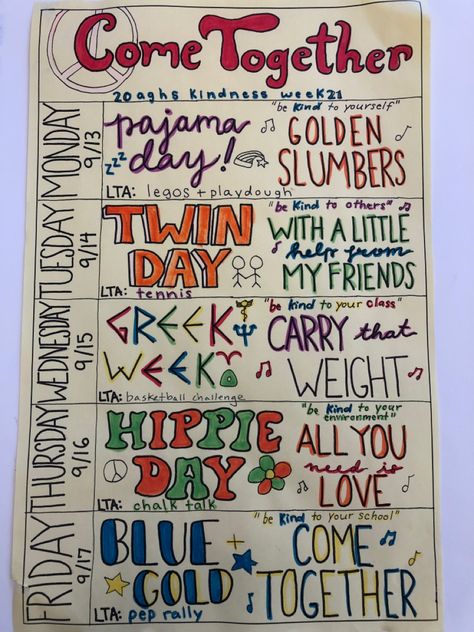 Come Together
20 aghs kindness week 21
MONDAY
9/13
pajama
day!
zzz
LTA: legos + playdough
"be kind to yourself"
GOLDEN
SLUMBERS
TUESDAY
9/14
TWIN
DAY
LTA: tennis
"be kind to others"
WITH A LITTLE
help from
MY FRIENDS
WEDNESDAY
9/15
GREEK
WEEK
LTA: basketball challenge
"be kind to your class"
CARRY that
WEIGHT
THURSDAY
9/16
HIPPIE
DAY
LTA: chalk talk
"be kind to your
environment"
ALL YOU
need is
LOVE
FRIDAY
9/17
BLUE +
GOLD
LTA: pep rally
"be kind to your school"
COME
TOGETHER